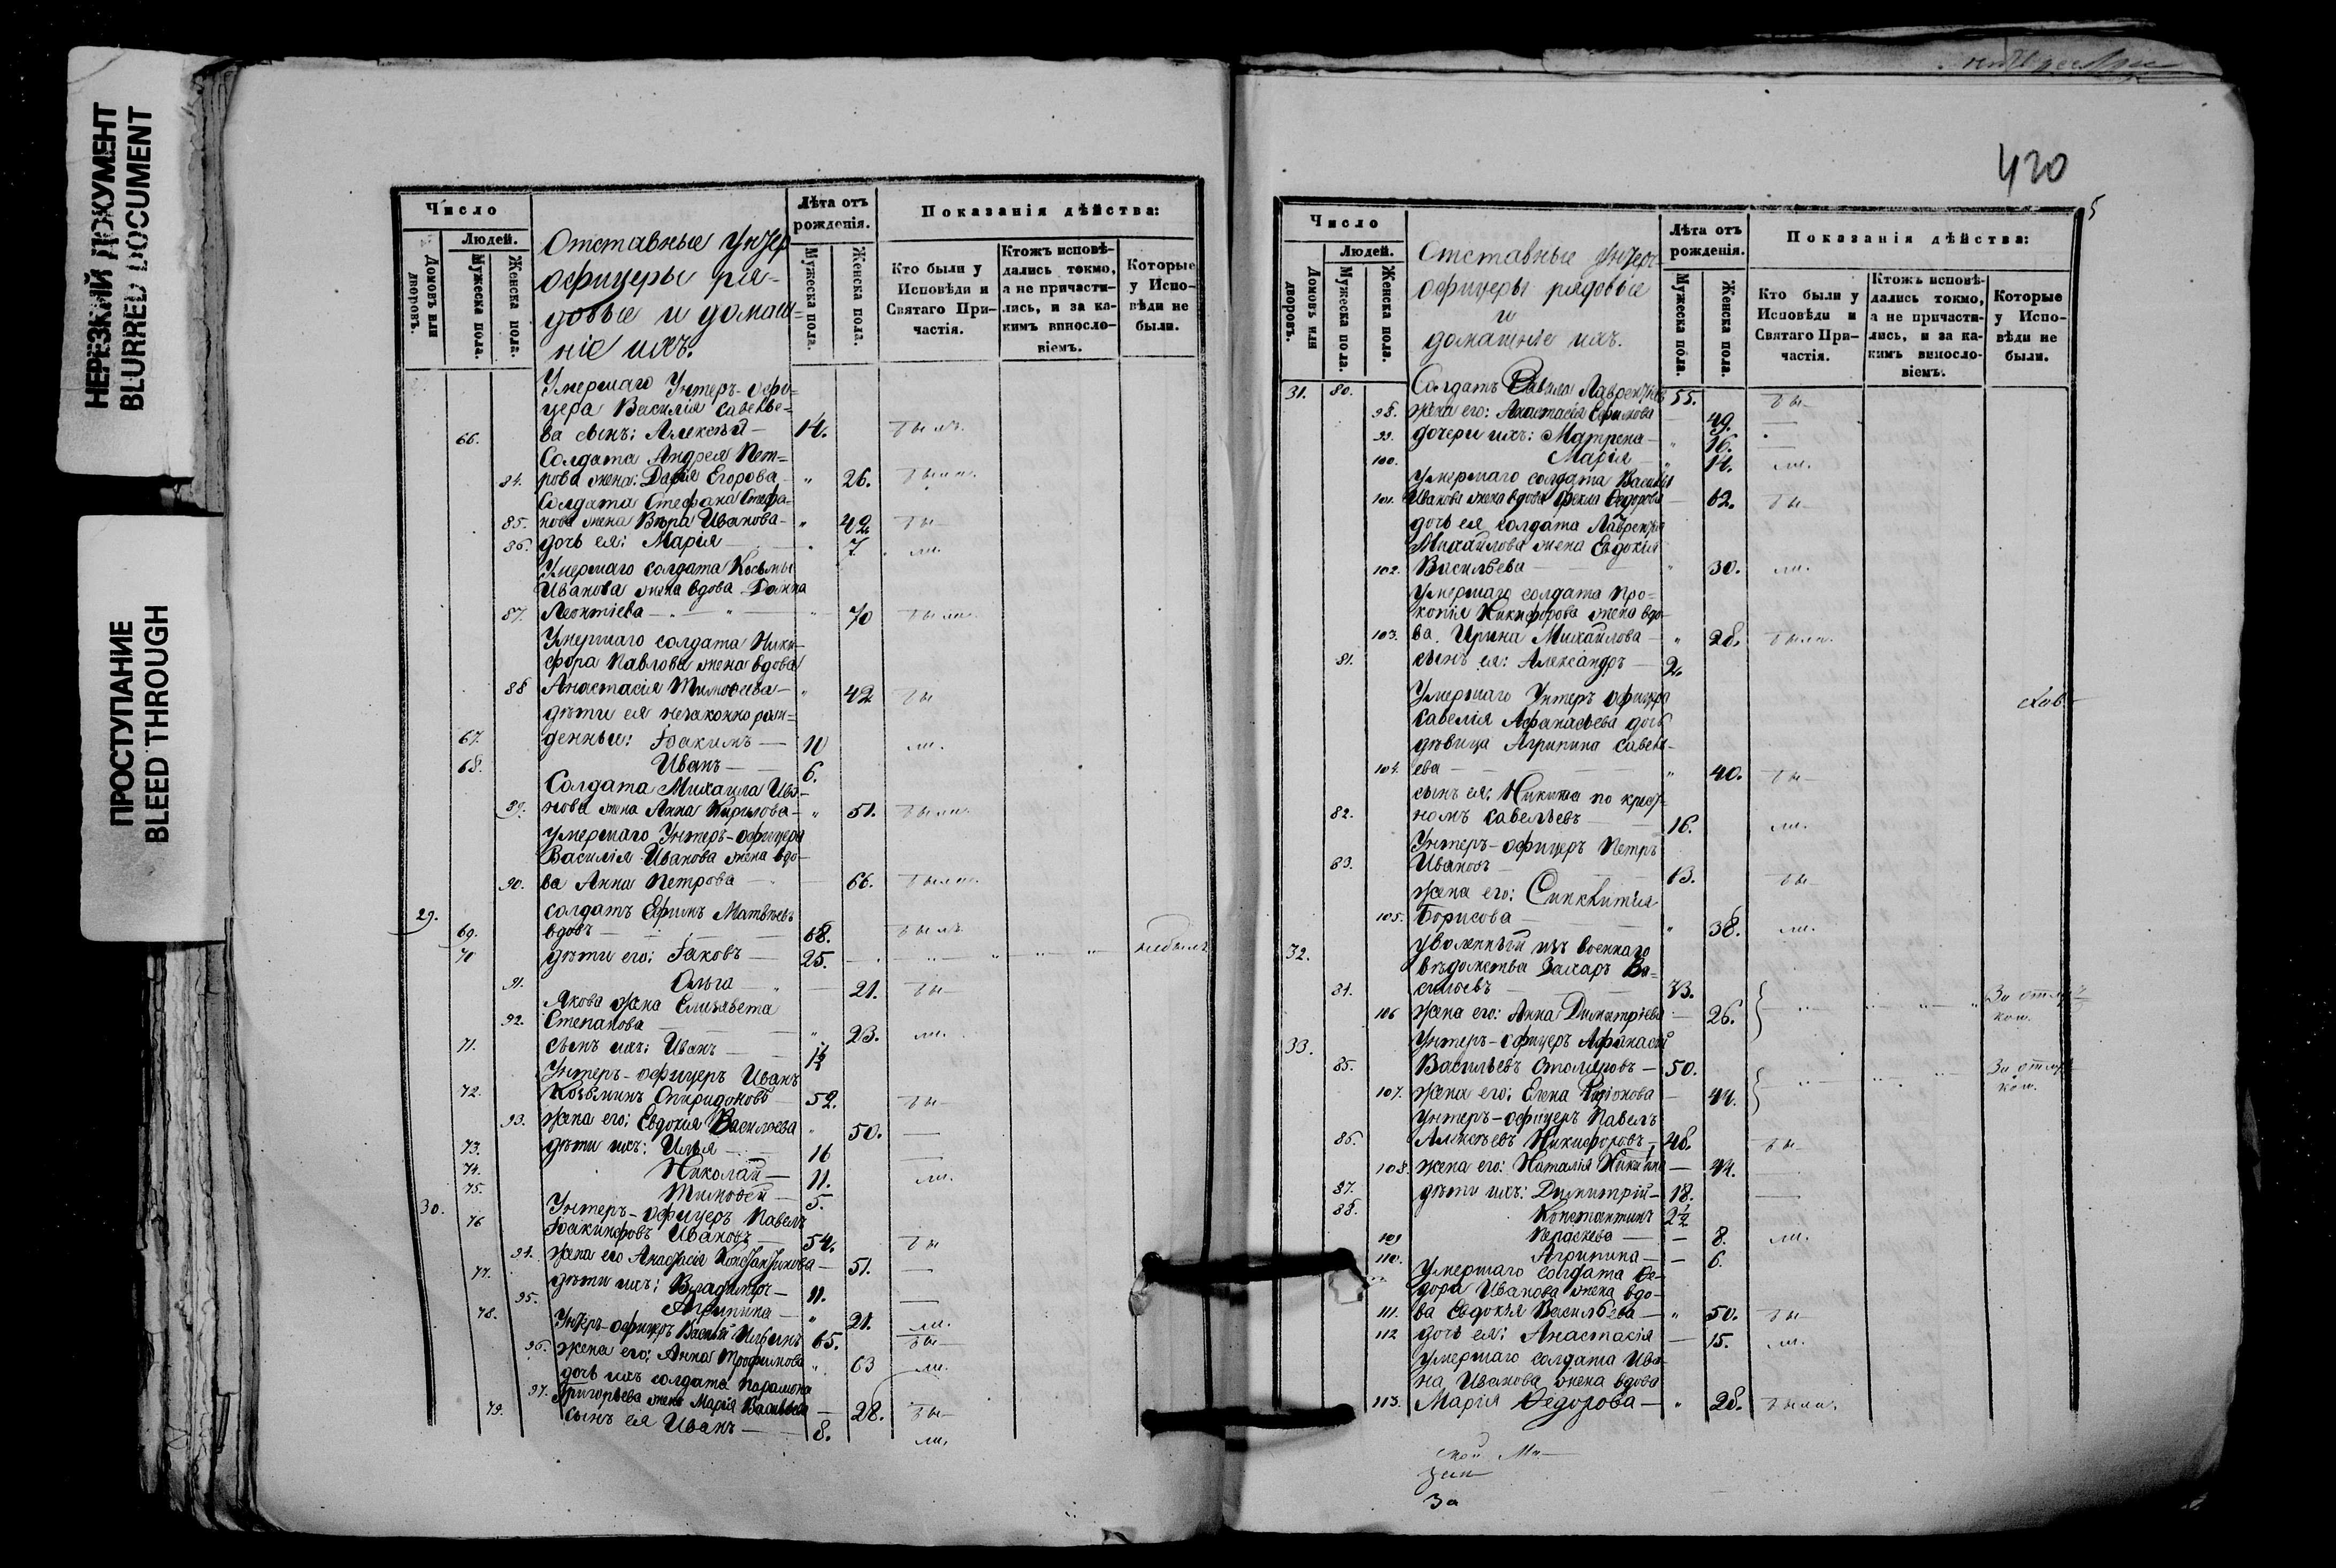 НЕРЕЗКИЙ ДОКУМЕНТ
BLURRED DOCUMENT
ПРОСТУПАНИЕ
BLEED THROUGH
Число
Людей.
Домовъ или дворовъ.
Мужеска пола.
Женска пола.
Отставные унтеръ
офицеры ря-
довые и домаш=
ніе ихъ.
Лѣта отъ рожденія.
Мужеска пола.
Женска пола.
Показанія дѣйства:
Кто были у Исповѣди и Святаго При-частія.
Ктожъ исповѣ-дались токмо, а не причасти-лись, и за ка-кимъ винносло-віемъ.
Которые у Испо-вѣди не были.
Умершаго Унтеръ-офи=
цера Василія Савелье=
66. ва сынъ: Алексѣй — 14. былъ.
Солдата Андрея Пет=
84. рова жена: Дарія Егорова — " 26. была.
Солдата Стефана Стефа=
85. нова жена Вѣра Иванова — " 42 бы—
86. дочь ея: Марія — 7. ли.
Умершаго солдата Косьмы
Иванова жена вдова Домна
87. Леонтіева — " — 70 была.
Умершаго солдата Ники-
фора Павлова жена вдова
88 Анастасія Тимоѳеева — " 42 бы
дѣти ея незаконно рож=
67. денные: Іоакимъ — 10 ли.
68. Иванъ — 6.
Солдата Михаила Ива-
89. нова жена Анна Кирилова — " 51. была.
умершаго Унтеръ-офицера
Василія Иванова жена вдо-
90. ва Анна Петрова — 66. была.
29. солдатъ Ефимъ Матвѣевъ
69. вдовъ — 68. былъ
70 дѣти его: Іаковъ — 25. — небылъ
91. Ольга — 21. бы—
Якова жена Елизавета
92. Степанова — " 23. ли.
71. сынъ ихъ: Иванъ — 1½
Унтеръ-офицеръ Иванъ
72. Козьминъ Спиридоновъ — 52. бы—
93. жена его: Евдокія Васильева " 50. —
73. дѣти ихъ: Илья — 16 —
74. Николай — 11. ли.
75. Тимоѳей — 5.
30. Унтеръ-офицеръ Павелъ
76 Іоакинфовъ Ивановъ — 54. бы
94. жена его Анастасія Константинова — 51. —
77. дѣти ихъ: Владиміръ — 11. —
95. Агрипина — " 21. ли.
78. Унтеръ-офицеръ Василій Ильинъ 65. бы—
96. жена его: Анна Трофимова " 63 ли.
дочь ихъ солдата Парамона
97. Григорьева жена Марія Васильева — 28. бы—
79. сынъ ея Иванъ — 8. ли.
420
5
Число
Людей.
Домовъ или дворовъ.
Мужеска пола.
Женска пола.
Отставные унтеръ
офицеры рядовые
и
домашніе ихъ.
Лѣта отъ рожденія.
Мужеска пола.
Женска пола.
Показанія дѣйства:
Кто были у Исповѣди и Святаго При-частія.
Ктожъ исповѣ-дались токмо, а не причасти-лись, и за ка-кимъ винносло-віемъ.
Которые у Испо-вѣди не были.
31. 80. Солдатъ Лаврентьевъ 55. бы—
98. жена его: Анастасія Ефимова — 49. —
99. дочери ихъ: Матрена — " 16. —
100. Марія — " 14. ли.
Умершаго солдата Василія
101. Иванова жена вдова Фекла Ѳедорова — 62. бы—
дочь ея солдата Лаврентія
Михайлова жена Евдокія
102. Васильева — " 30. ли.
Умершаго солдата Про=
копія Никифорова жена вдо-
103. ва Ирина Михайлова — " 28. была.
81. сынъ ея: Александръ — 2.
Умершаго Унтеръ офицера
Савелія Афанасьева дочь
дѣвица Агрипина Савель-
104. ева — " 40. бы—
сынъ ея: Никита по крест-
82. номъ Савельевъ — 16. ли.
Унтеръ-офицеръ Петръ
83. Ивановъ — 63. бы—
жена его: Синклитія
105. Борисова — " 38. ли.
32. уволенный изъ военнаго
вѣдомства Захаръ Ва-
84. сильевъ — 33.
106 жена его: Анна Димитріева — 26. За отлуч-
кою.
33. Унтеръ-офицеръ Афанасій
85. Васильевъ Столяровъ — 50. За отлуч-
107. жена его: Елена — 44. кою.
Унтеръ-офицеръ Павелъ
86. Алексѣевъ Никифоровъ — 48. бы—
108. жена его: Наталія Никитина — 44. —
87. дѣти ихъ: Димитрій — 18. —
88. Константинъ 2½
109 Параскева — — 8. ли.
110. Агрипина — — 6.
Умершаго солдата Ѳе-
дора Иванова жена вдо-
111. ва Евдокія Васильева — " 50. бы—
112 дочь ея: Анастасія — 15. ли.
умершаго солдата Ива-
на Иванова жена вдова
113. Марія Ѳедорова — " 28. была,
За